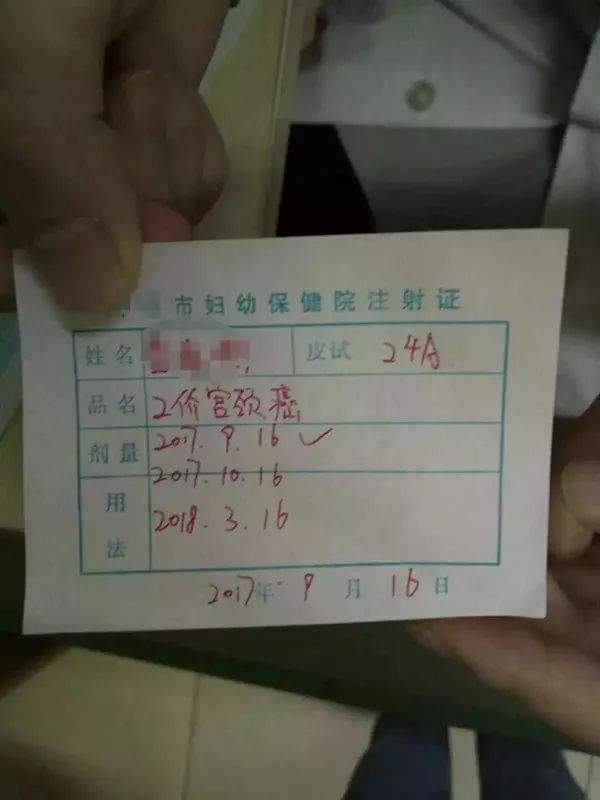 市妇幼保健院注射证
姓名 皮试 24A
品名 2价宫颈癌
剂量 2017.9.16 ✓
2017.10.16
用法 2018.3.16
2017年9月16日